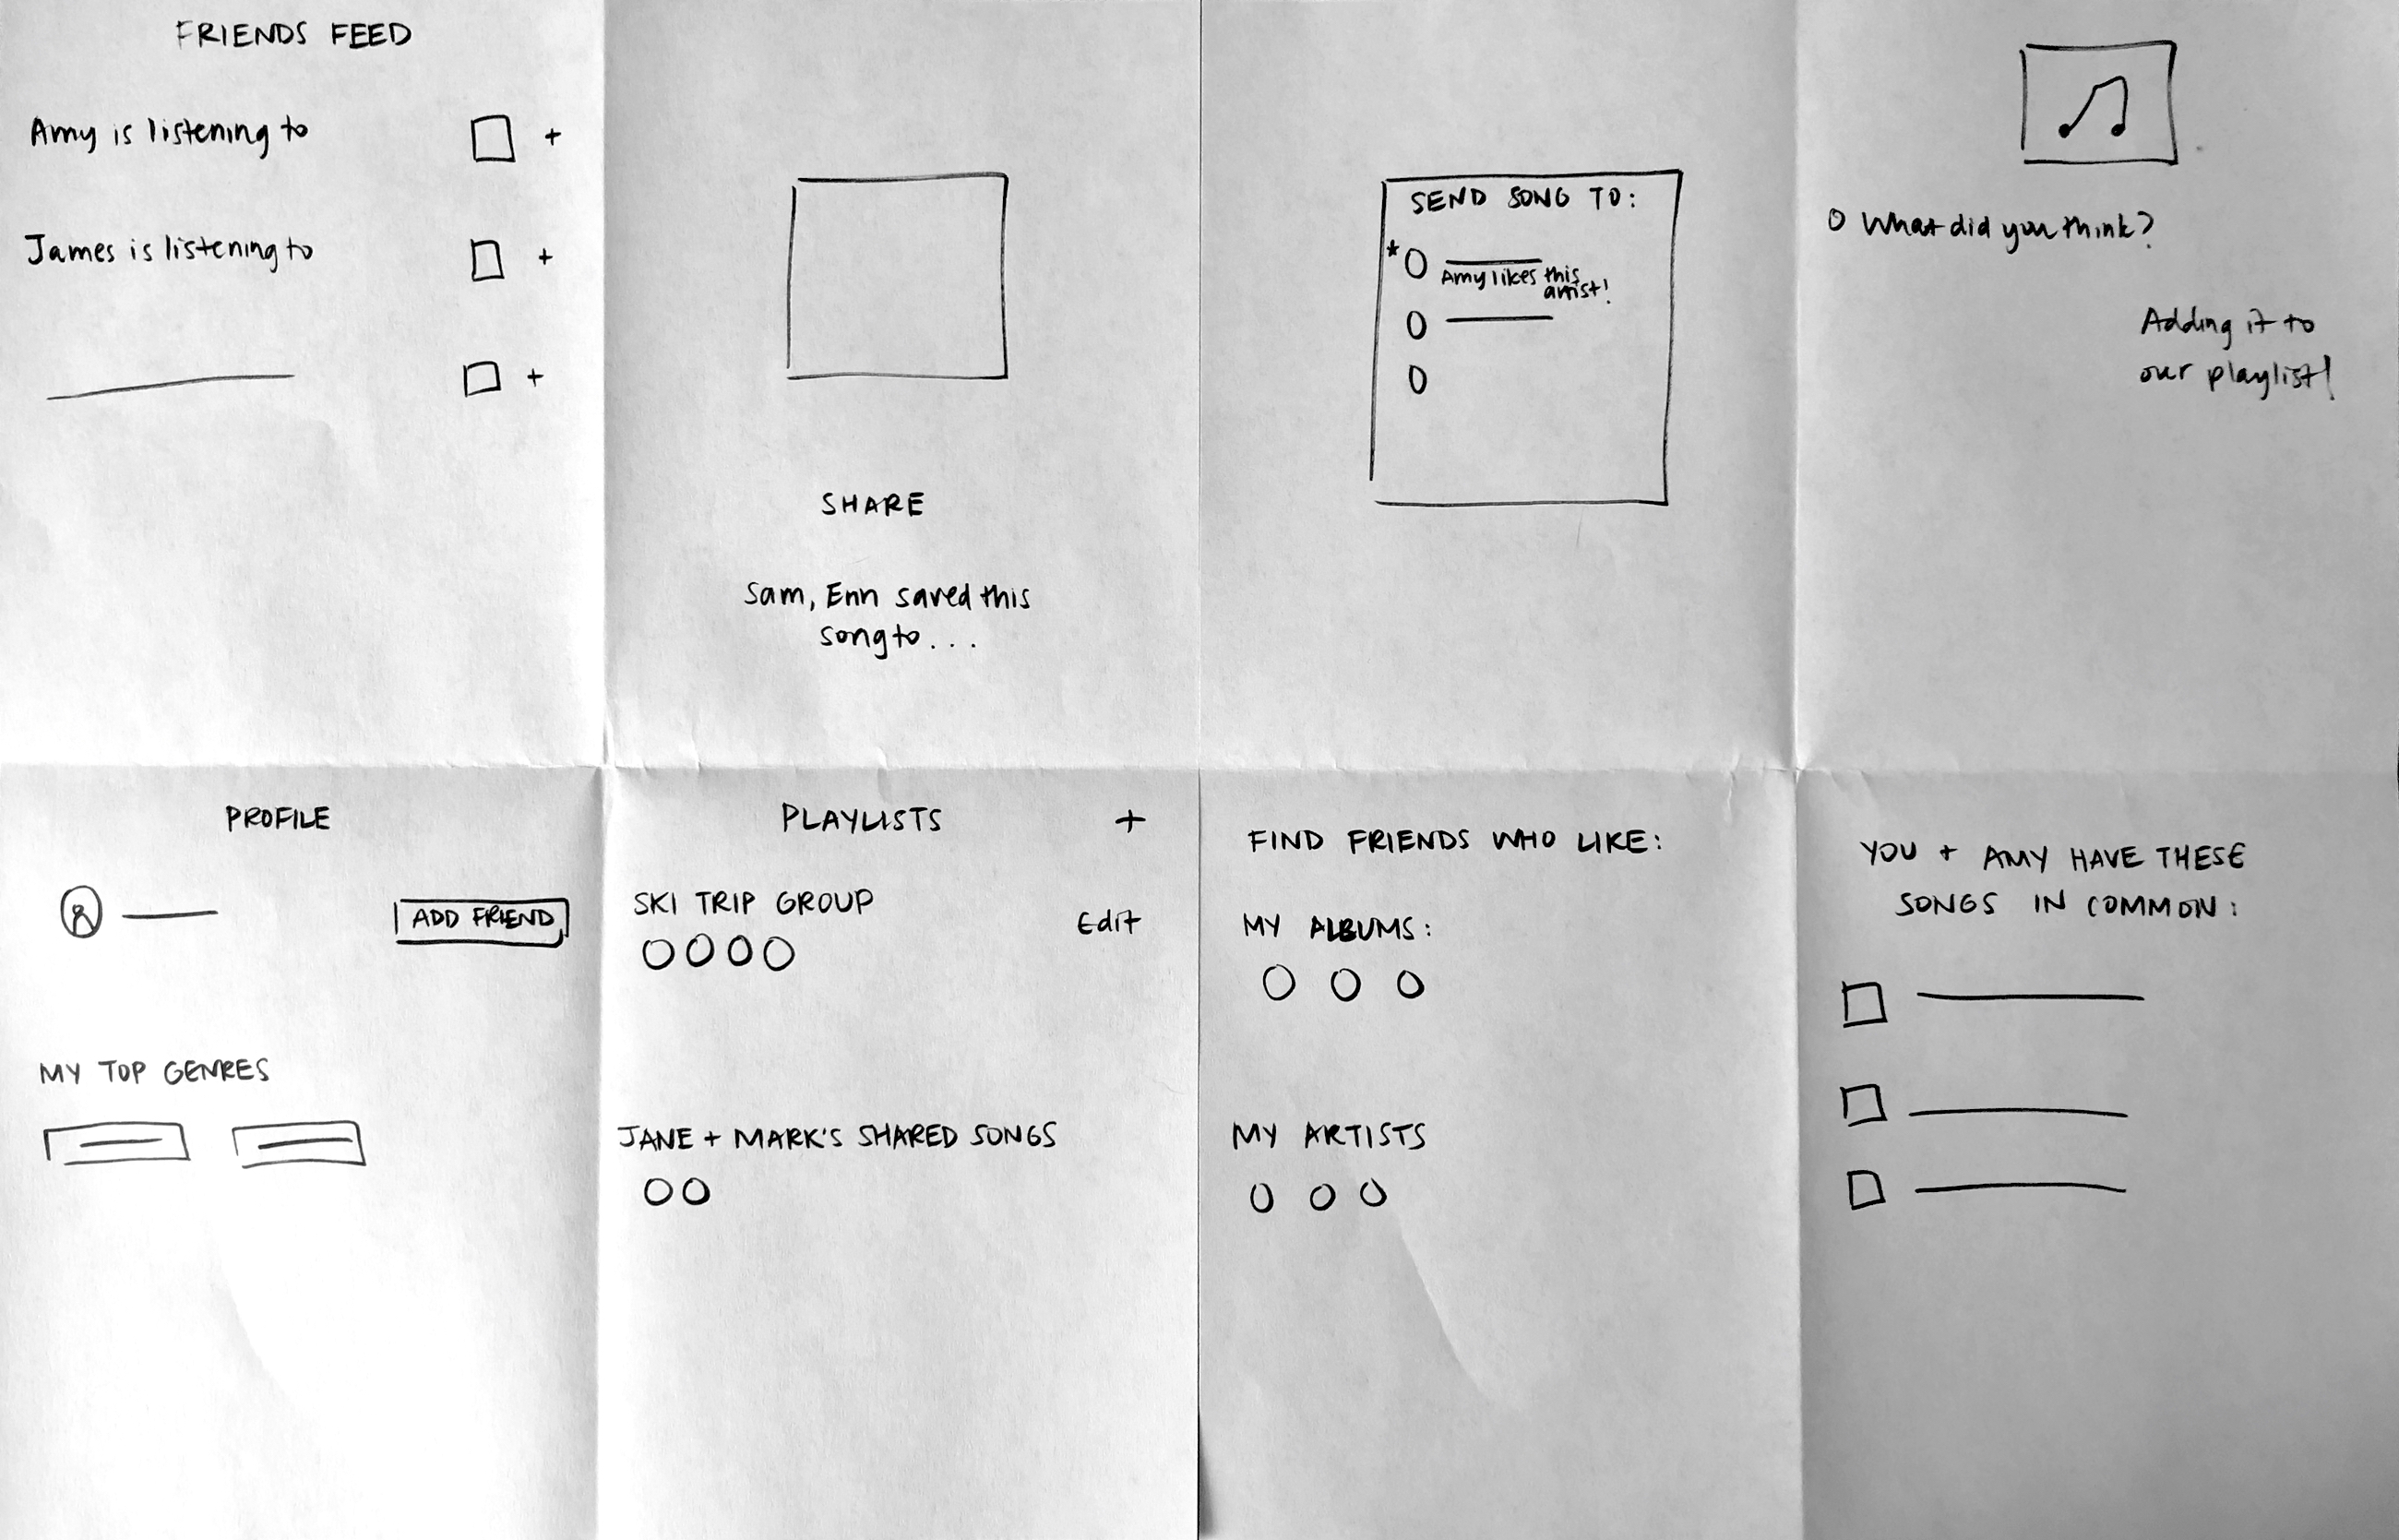 FRIENDS FEED
Amy is listening to
+
James is listening to
+
+
SHARE
Sam, Erin saved this
song to...
SEND SONG TO:
*
Amy likes this
artist!
What did you think?
Adding it to
our playlist!
PROFILE
ADD FRIEND
MY TOP GENRES
PLAYLISTS +
SKI TRIP GROUP
Edit
JANE + MARK'S SHARED SONGS
FIND FRIENDS WHO LIKE:
MY ALBUMS:
MY ARTISTS
YOU + AMY HAVE THESE
SONGS IN COMMON: